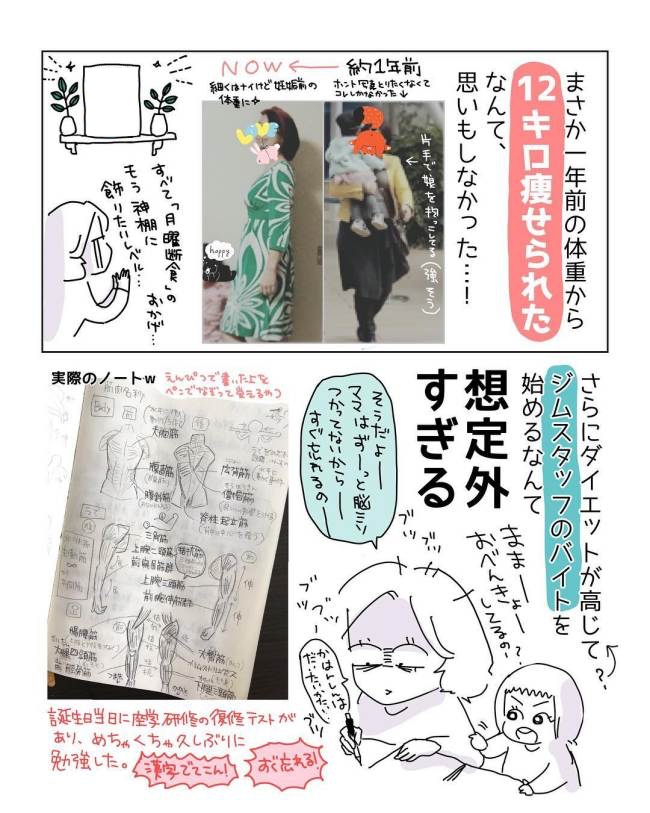 まさか一年前の体重から
12キロ痩せられた
なんて、
思いもしなかった…!
約1年前
ホント写真とりたくなくて
コレしかなかった↓
NOW←
細くはナイけど妊娠前の
体重に
←片手で娘を抱っこしてる(強そう)
LOVE
happy
すべて「月曜断食」の
おかげ…
もう神棚に
飾りたいレベル…
さらにダイエットが高じて
ジムスタッフのバイトを
始めるなんて
想定外
すぎる
ままーょー
おべんきしてるの?
?
そうだよー
ママはずーっと脳ミソ
つかってないからー
すぐ忘れるのー
ブツブツ
ブツブツ
ブツブツ
実際のノートw
えんぴつで書いた上を
ペンでなぞって覚えるやつ
Body
前
後
大胸筋
腹直筋
腹斜筋
広背筋
僧帽筋
脊柱起立筋
三角筋
上腕二頭筋
前腕屈筋群
上腕三頭筋
前腕伸筋群
腸腰筋
大腿四頭筋
前脛骨筋
大臀筋
ハムストリングス
下腿三頭筋
誕生日当日に座学研修の復修テストが
あり、めちゃくちゃ久しぶりに
勉強した。
漢字でてこん!
すぐ忘れる!